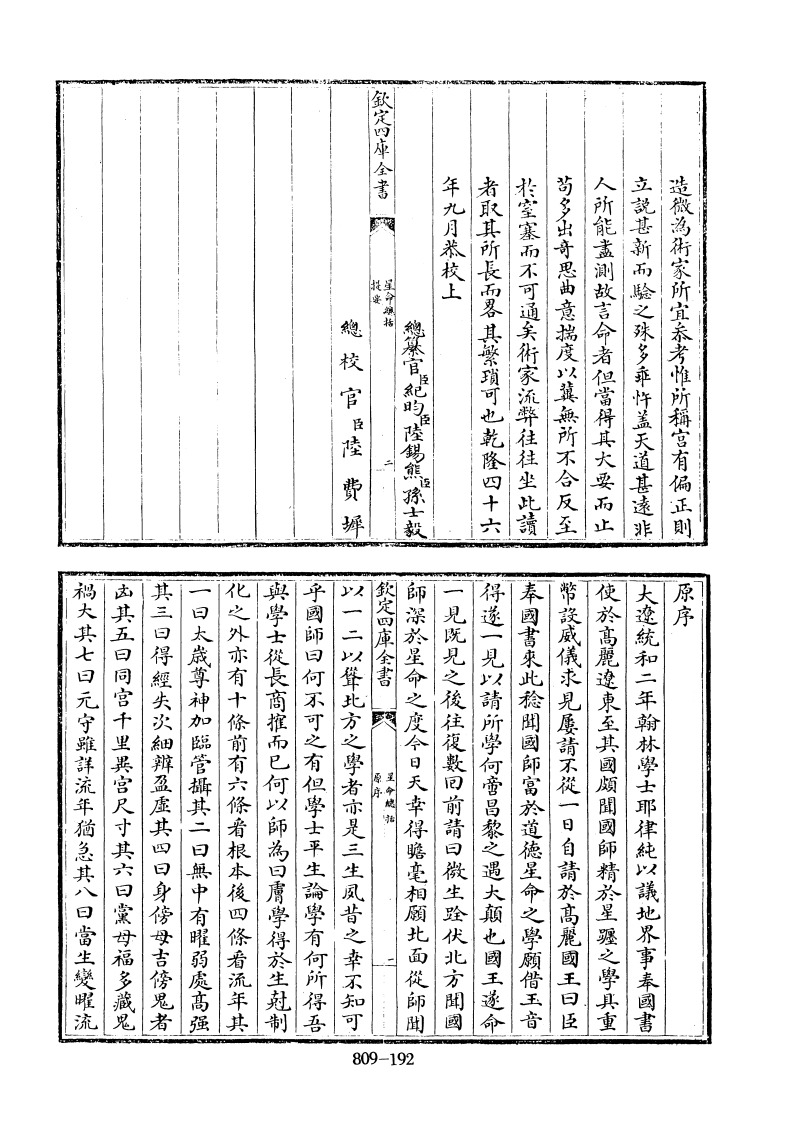 造微為術家所宜叅考惟所稱宫有偏正則
立説甚新而驗之殊多乖忤盖天道甚逺非
人所能盡測故言命者但當得其大要而止
苟多出竒思曲意揣度以冀無所不合反至
於窒塞而不可通矣術家流弊往往坐此讀
者取其所長而畧其繁瑣可也乾隆四十六
年九月恭校上
總纂官臣紀昀臣陸錫熊臣孫士毅
欽定四庫全書
星命總括
提要
二
總校官臣陸費墀
原序
大遼統和二年翰林學士耶律純以議地界事奉國書
使於髙麗遼東至其國頗聞國師精於星躔之學具重
幣設威儀求見屢請不從一日自請於髙麗國王曰臣
奉國書來此稔聞國師富於道德星命之學願借玉音
得遂一見以請所學何啻昌黎之遇大顛也國王遂命
一見既見之後往復數囘前請曰微生跧伏北方聞國
師深於星命之度今日天幸得瞻毫相願北面從師聞
欽定四庫全書
星命總括
原序
二
以一二以聳北方之學者亦是三生夙昔之幸不知可
乎國師曰何不可之有但學士平生論學有何所得吾
與學士從長商搉而已何以師為曰膚學得於生尅制
化之外亦有十條前有六條看根本後四條看流年其
一曰太嵗尊神加臨管攝其二曰無中有曜弱處髙强
其三曰得經失次細辨盈虚其四曰身傍母吉傍鬼者
凶其五曰同宫千里異宫尺寸其六曰黨母福多藏鬼
禍大其七曰元守雖詳流年猶急其八曰當生變曜流
809-192